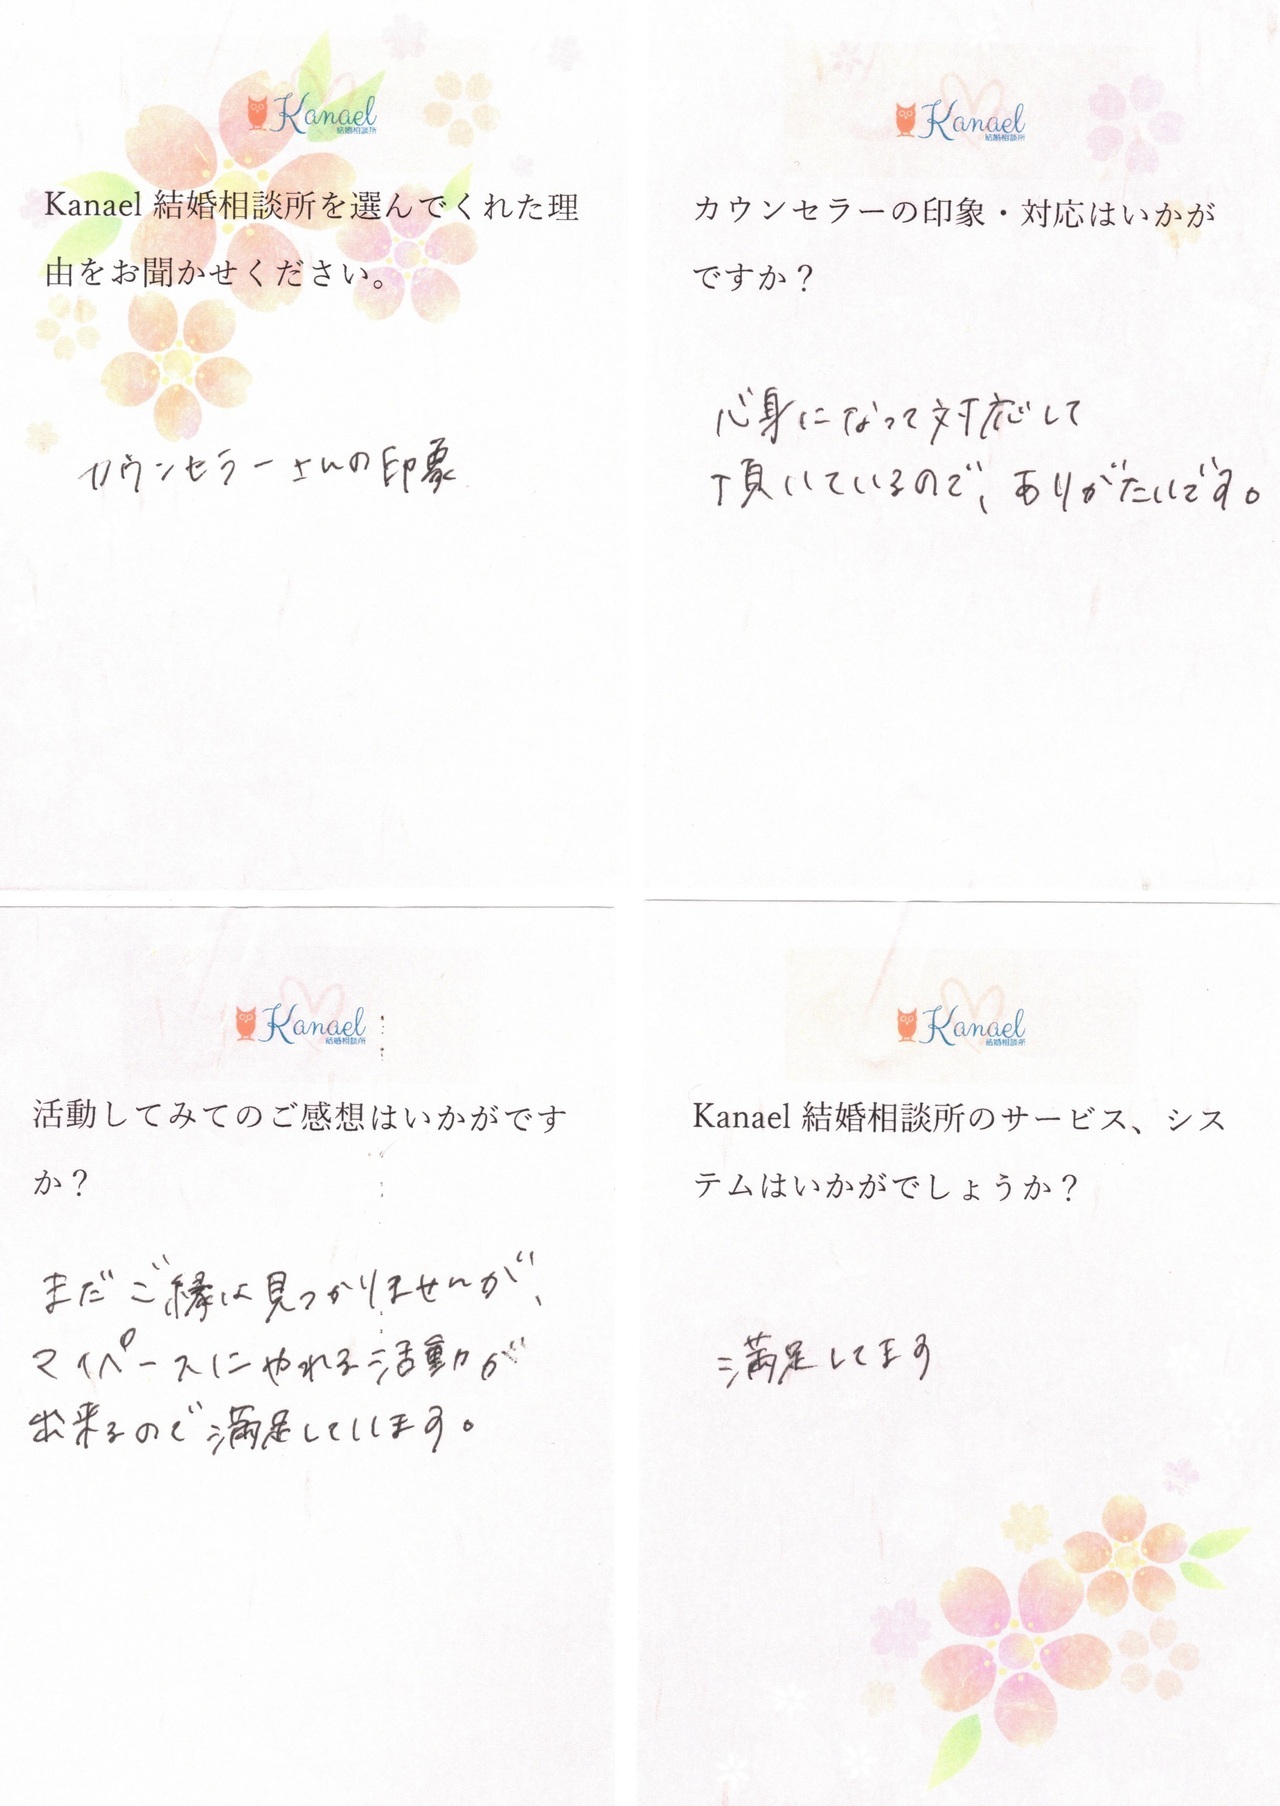 Kanael
結婚相談所
Kanael 結婚相談所を選んでくれた理
由をお聞かせください。
カウンセラーさんの印象
Kanael
結婚相談所
カウンセラーの印象・対応はいかが
ですか？
心身になって対応して
頂いているので、ありがたいです。
Kanael
結婚相談所
活動してみてのご感想はいかがです
か？
まだご縁は見つかりませんが、
マイペースにやれる活動が
出来るので満足しています。
Kanael
結婚相談所
Kanael 結婚相談所のサービス、シス
テムはいかがでしょうか？
満足してます